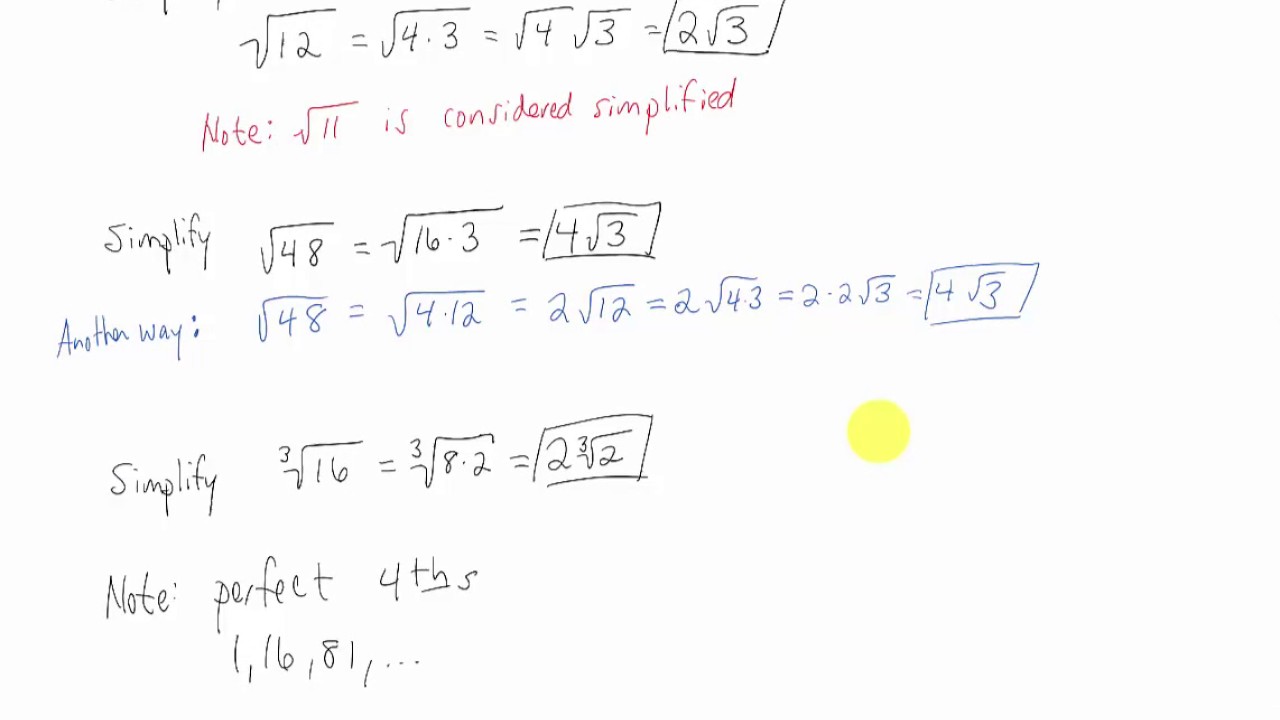 √12 = √4·3 = √4 √3 = 2√3
Note: √11 is considered simplified
Simplify √48 = √16·3 = 4√3
Another way: √48 = √4·12 = 2√12 = 2√4·3 = 2·2√3 = 4√3
Simplify ∛16 = ∛8·2 = 2∛2
Note: perfect 4ths
1, 16, 81, ...